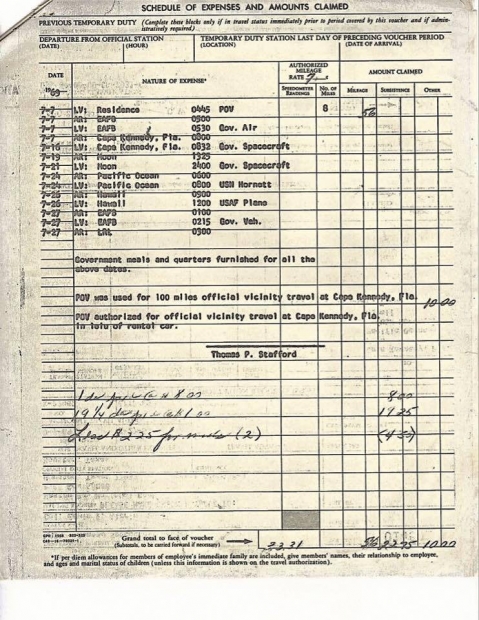 SCHEDULE OF EXPENSES AND AMOUNTS CLAIMED
PREVIOUS TEMPORARY DUTY (Complete these blocks only if in travel status immediately prior to period covered by this voucher and if administratively required.)
DEPARTURE FROM OFFICIAL STATION
(DATE) (HOUR)
TEMPORARY DUTY STATION LAST DAY OF PRECEDING VOUCHER PERIOD
(LOCATION) (DATE OF ARRIVAL)
DATE
1969
NATURE OF EXPENSE*
AUTHORIZED MILEAGE RATE 7
SPEEDOMETER READINGS
NO. OF MILES
AMOUNT CLAIMED
MILEAGE SUBSISTENCE OTHER
7-7 LV: Residence 0445 POV 8 56
7-7 AR: EAFB 0500
7-7 LV: EAFB 0530 Gov. Air
7-7 AR: Cape Kennedy, Fla. 0800
7-16 LV: Cape Kennedy, Fla. 0832 Gov. Spacecraft
7-19 AR: Moon 1325
7-21 LV: Moon 2400 Gov. Spacecraft
7-24 AR: Pacific Ocean 0600
7-24 LV: Pacific Ocean 0800 USN Hornett
7-26 AR: Hawaii 0900
7-26 LV: Hawaii 1200 USAF Plane
7-27 AR: EAFB 0100
7-27 LV: EAFB 0215 Gov. Veh.
7-27 AR: LRL 0300
Government meals and quarters furnished for all the
above dates.
POV was used for 100 miles official vicinity travel at Cape Kennedy, Fla. 10.00
POV authorized for official vicinity travel at Cape Kennedy, Fla.
in leiu of rental car.
Thomas P. Stafford
8.00
19 1/4 1.00 19.25
2.25 (2) (4.50)
Grand total to face of voucher
(Subtotals, to be carried forward if necessary)
33.31 56 22.75 10.00
*If per diem allowances for members of employee's immediate family are included, give members' names, their relationship to employee,
and ages and marital status of children (unless this information is shown on the travel authorization).